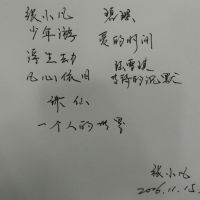 张小凡
少年游
浮生去劫
凡心依旧
碧瑶
爱的时间
张雪迎
等待的沉默
诛仙
一个人的世界
张小凡
2016.11.15.